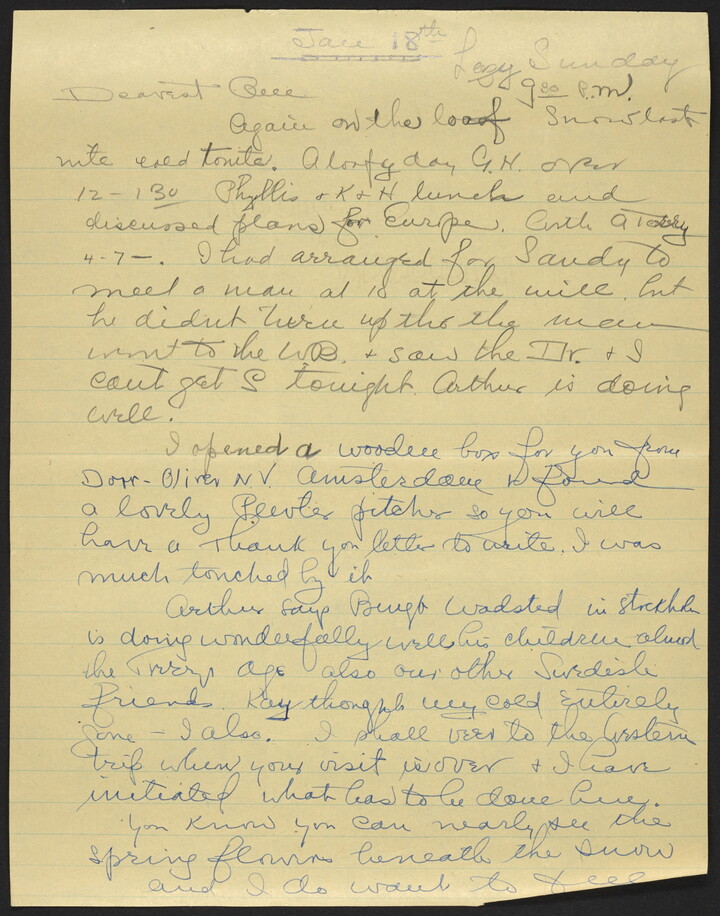 Jan 18th
Lazy Sunday
9 30 P.M.
Dearest
Again on the loaf Snow last
nite cold tonite. A loafy day G.H. over
12-1 30 Phyllis & K & H lunch and
discussed plans for Europe.
4-7-. I had arranged for Sandy to
meet a man at 10 at the mill, but
he didnt turn up tho the man
went to the W.B. & saw the Dr. & I
cant get S tonight. Arthur is doing
well.
I opened a wooden box for you from
Dorr-Oliver N.V. Amsterdam & found
a lovely Pewter pitcher so you will
have a Thank you letter to write. I was
much touched by it
Arthur says Bengt Wadsted in Stockholm
is doing wonderfully well his children about
the age also our other Swedish
friends. Kay thought my cold entirely
gone - I also. I shall veer to the Western
trip when your visit is over & I have
initiated what has to be done here.
You know you can nearly see the
spring flowers beneath the snow
and I do want to